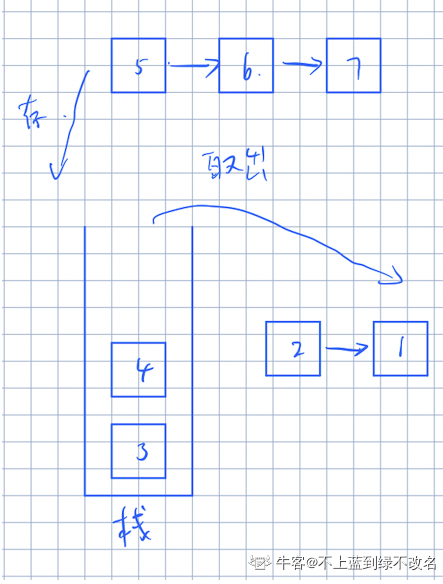 5 6 7
存
取出
2 1
4
3
栈
牛客@不上蓝到绿不改名